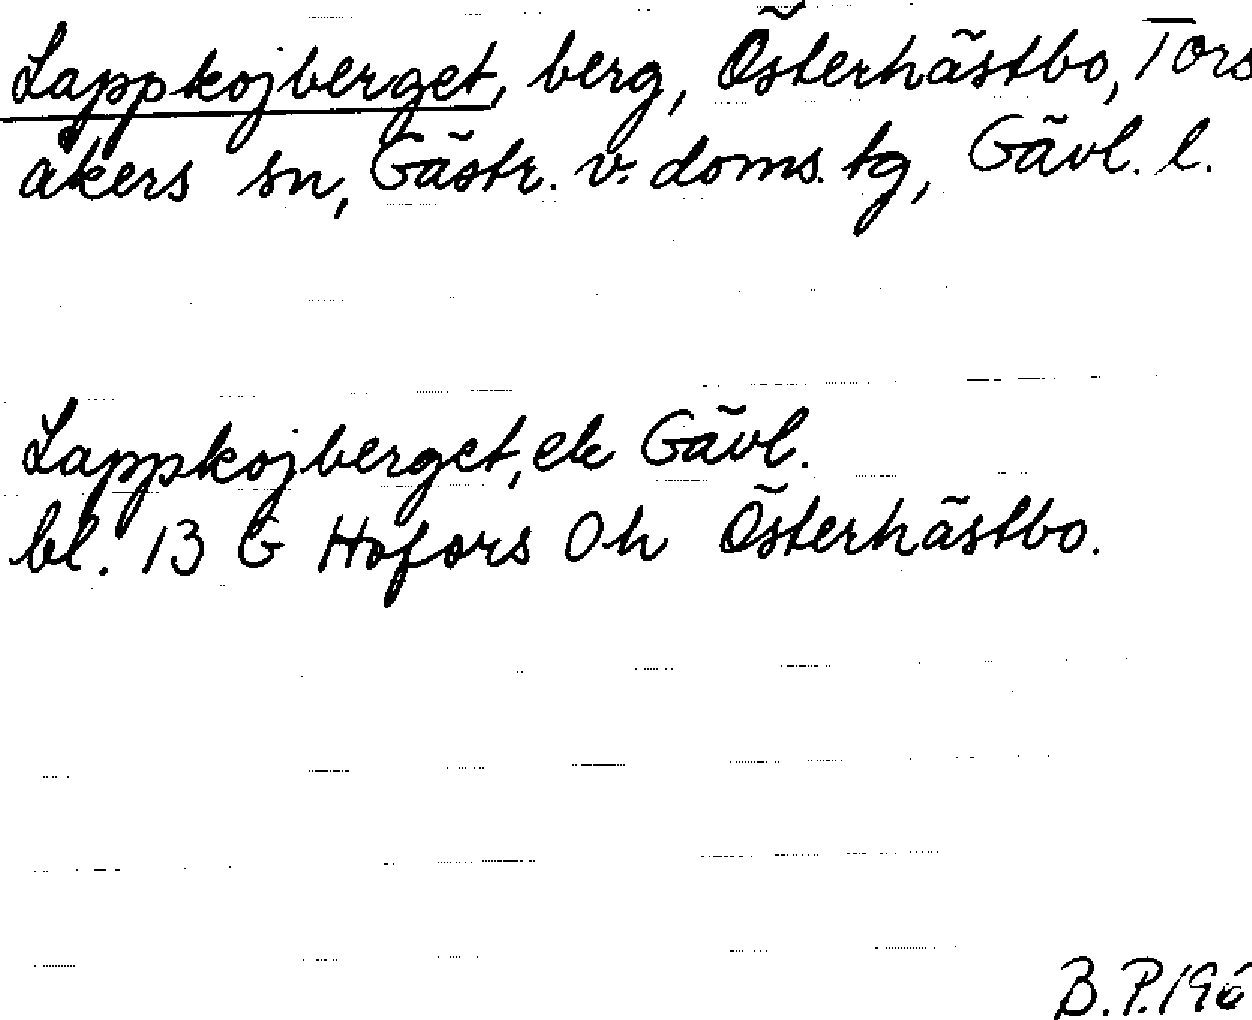 Lappkojberget, berg, Österhästbo, Tors
åkers sn, Gästr. v. doms. tg, Gävl. l.
Lappkojberget, ek Gävl.
bl. 13 G Hofors 0h Österhästbo.
B. P. 196